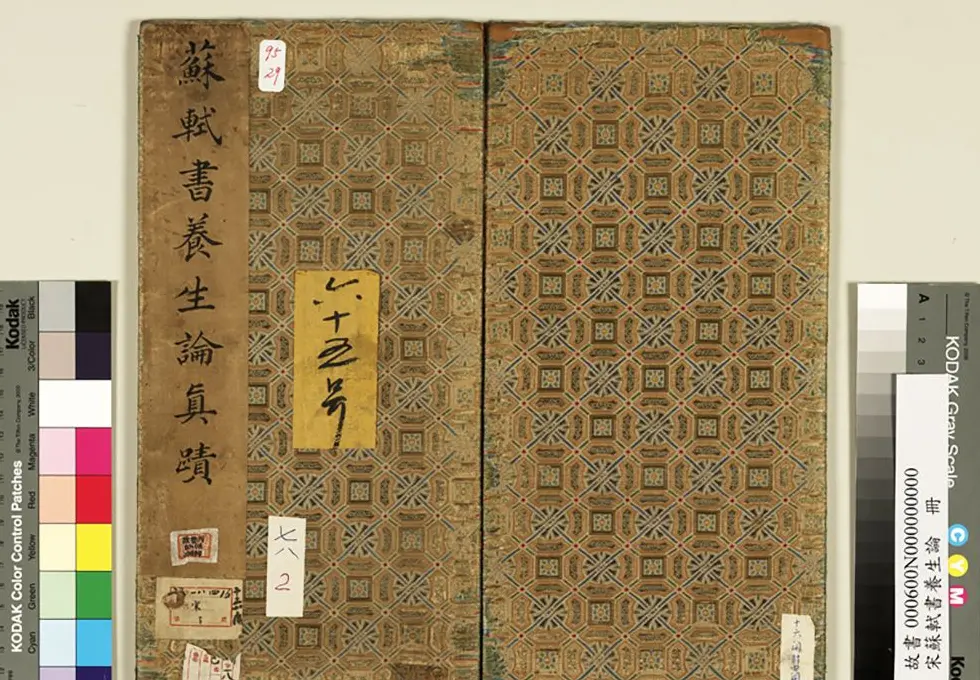 蘇軾書養生論真蹟
95
29
六十五号
七八
2
Kodak
LICENSED PRODUCT
Black
3/Color
White
Magenta
Red
Yellow
Green
Cyan
KODAK Color Control Patches
© The Tiffen Company, 2000
KODAK Gray Scale
A 1 2 3
C
Y
M
Kodak
故書 000600N000000000
宋蘇軾書養生論 冊